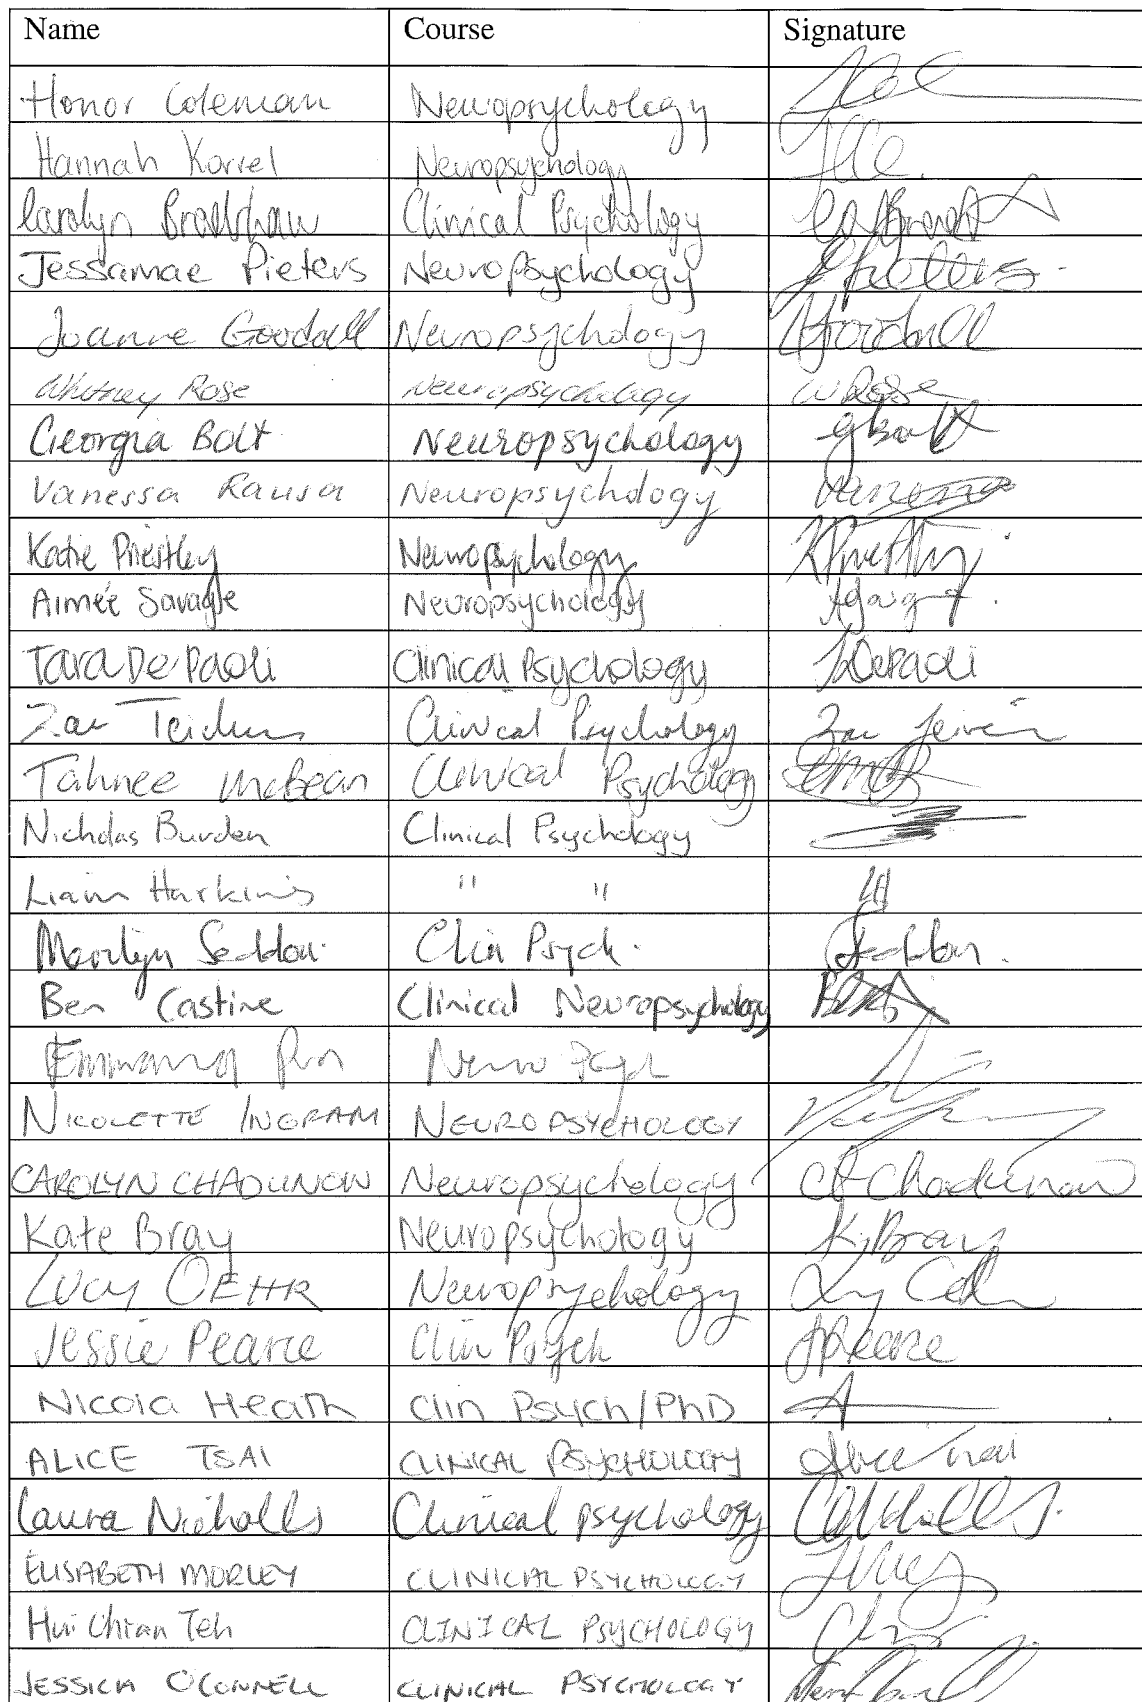 Name Course Signature
Honor Coleman Neuropsychology
Hannah Korrel Neuropsychology
Carolyn Bradshaw Clinical Psychology
Jessamae Pieters Neuropsychology JPieters
Joanne Goodall Neuropsychology JGoodall
Whitney Rose Neuropsychology W Rose
Georgia Bolt Neuropsychology gbolt
Vanessa Rausa Neuropsychology Vanessa
Katie Priestley Neuropsychology
Aimée Savage Neuropsychology
Tara De Paoli Clinical Psychology TDePaoli
Zac Clinical Psychology Zac
Tahnee McBean Clinical Psychology
Nicholas Burden Clinical Psychology
Liam Harkins " " LH
Marilyn Seddon. Clin Psych. Seddon.
Ben Castine Clinical Neuropsychology Ben
Neuro Psych
NICOLETTE INGRAM NEUROPSYCHOLOGY
CAROLYN CHADUNOW Neuropsychology Chadunow
Kate Bray Neuropsychology K Bray
LUCY OEHR Neuropsychology
Jessie Pearce Clin Psych JPearce
Nicola Heath Clin Psych/PhD
ALICE TSAI CLINICAL PSYCHOLOGY Alice Tsai
Laura Nicholls Clinical psychology
ELISABETH MORLEY CLINICIAL PSYCHOLOGY
Hui Chian Teh CLINICAL PSYCHOLOGY
JESSICA O'CONNELL CLINICAL PSYCHOLOGY